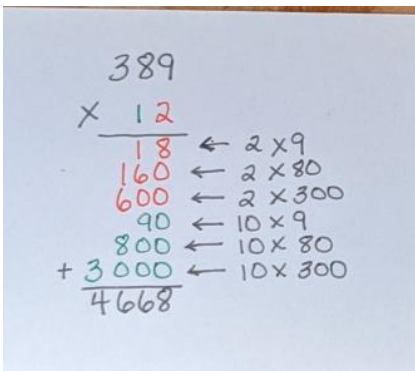 389
× 12
18 ← 2 × 9
160 ← 2 × 80
600 ← 2 × 300
90 ← 10 × 9
800 ← 10 × 80
+ 3000 ← 10 × 300
4668